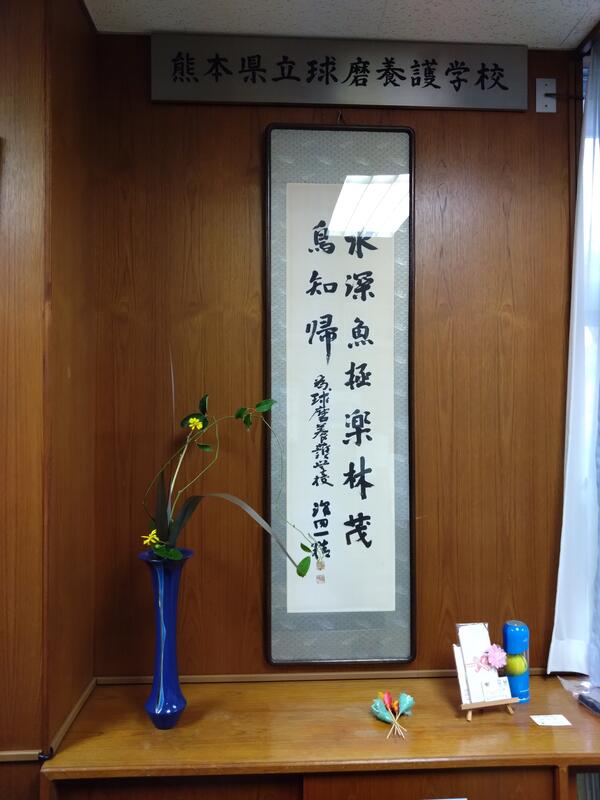 熊本県立球磨養護学校
水深魚極楽林茂
鳥知帰
為球磨養護学校 沼田一精